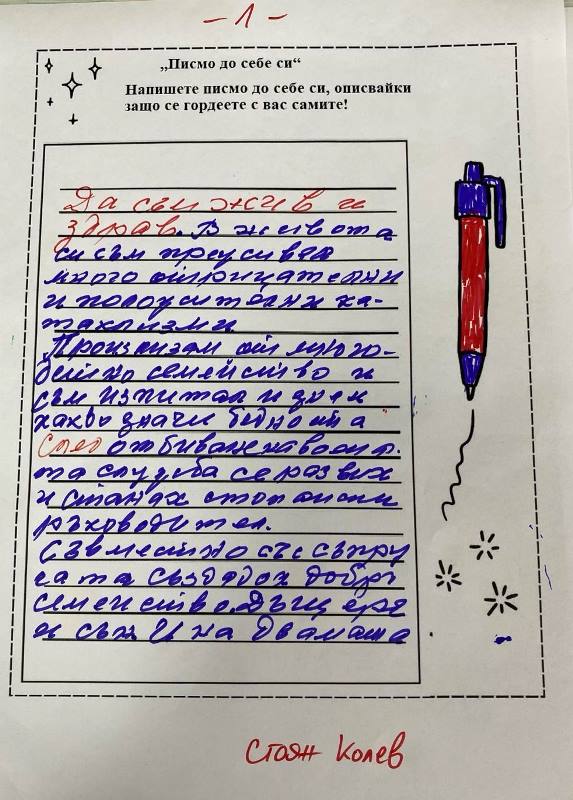 - 1 -
„Писмо до себе си“
Напишете писмо до себе си, описвайки
защо се гордеете с вас самите!
Да съм жив и
здрав. В живота
си съм преусивял
много отрицателни
и положителни ка-
таклизми
Произлизам от много-
бейско семейство и
съм изпитал и знам
какво значи бедността
След отбиване на воен.
та служба се развих
и станах стопански
ръководител.
Съвместно със съпру
гата създадох добро
семейство дъщеря
и син И на двамата
Стоян Колев